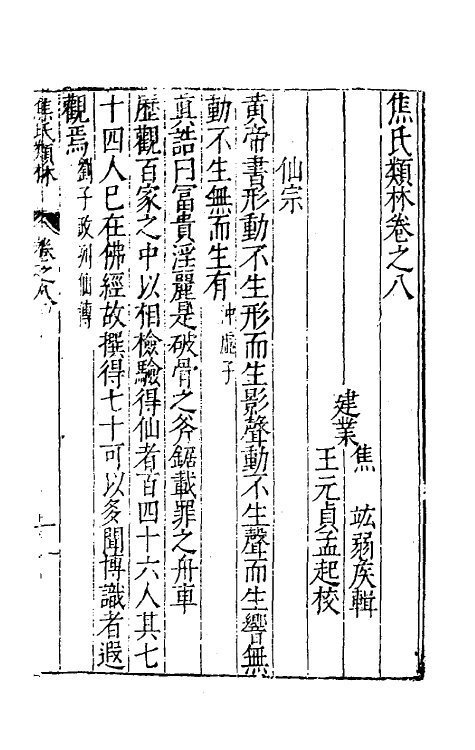 焦氏類林卷之八
建業
焦　竑弱矦輯
王元貞孟起校
仙宗
黄帝書形動不生形而生影聲動不生聲而生響無
動不生無而生有 冲虛子
真誥曰冨貴淫麗是破骨之斧鋸載罪之舟車
歷觀百家之中以相檢驗得仙者百四十六人其七
十四人已在佛經故撰得七十可以多聞博識者遐
觀焉 劉子政列仙傳
焦氏類林 卷之八